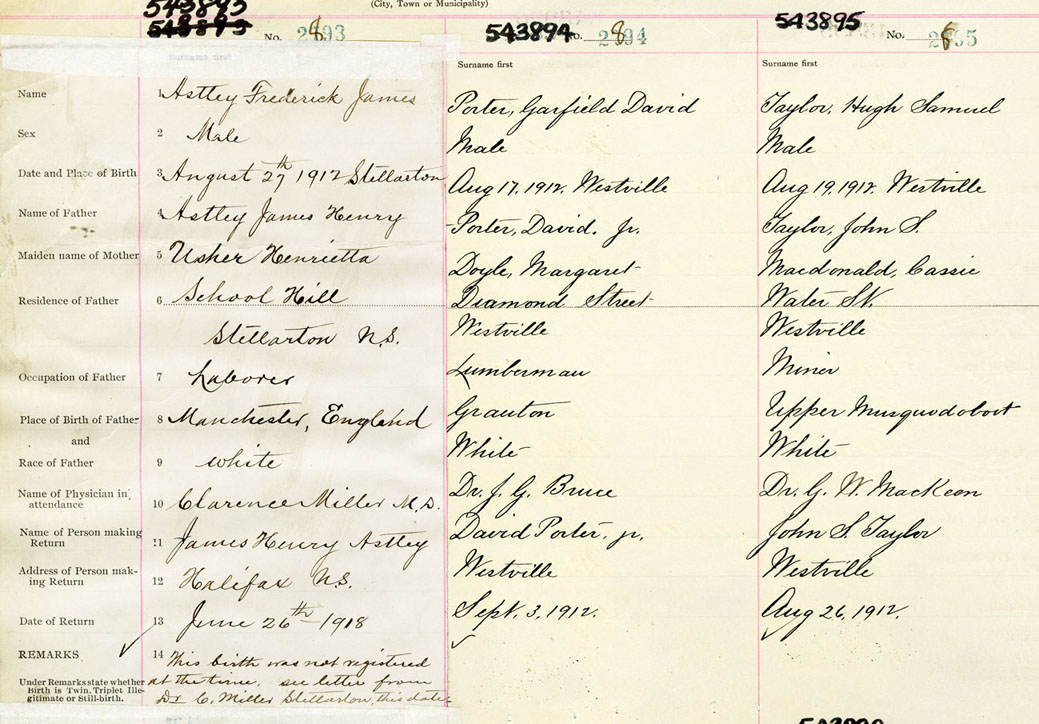 (City, Town or Municipality)
543893
543893 No. 2893
543894 No. 2894
543895 No. 2895
Surname first
Surname first
Name 1 Astley Frederick James
Porter, Garfield David
Taylor, Hugh Samuel
Sex 2 Male
Male
Male
Date and Place of Birth 3 August 27th 1912 Stellarton
Aug 17, 1912. Westville
Aug 19, 1912. Westville
Name of Father 4 Astley James Henry
Porter, David. Jr.
Taylor, John S.
Maiden name of Mother 5 Usher Henrietta
Doyle, Margaret
Macdonald, Cassie
Residence of Father 6 School Hill
Diamond Street
Water St.
Stellarton N.S.
Westville
Westville
Occupation of Father 7 Laborer
Lumberman
Miner
Place of Birth of Father 8 Manchester, England
Granton
Upper Musquodoboit
and
Race of Father 9 white
White
White
Name of Physician in attendance 10 Clarence Miller M.D.
Dr. J. G. Bruce
Dr. G. W. MacKeen
Name of Person making Return 11 James Henry Astley
David Porter. jr.
John S. Taylor
Address of Person making Return 12 Halifax N.S.
Westville
Westville
Date of Return 13 June 26th 1918
Sept. 3, 1912.
Aug 26, 1912.
REMARKS 14 This birth was not registered
Under Remarks state whether at the time. see letter from
Birth is Twin, Triplet Ille-
gitimate or Still-birth. Dr C. Miller Stellarton, this date